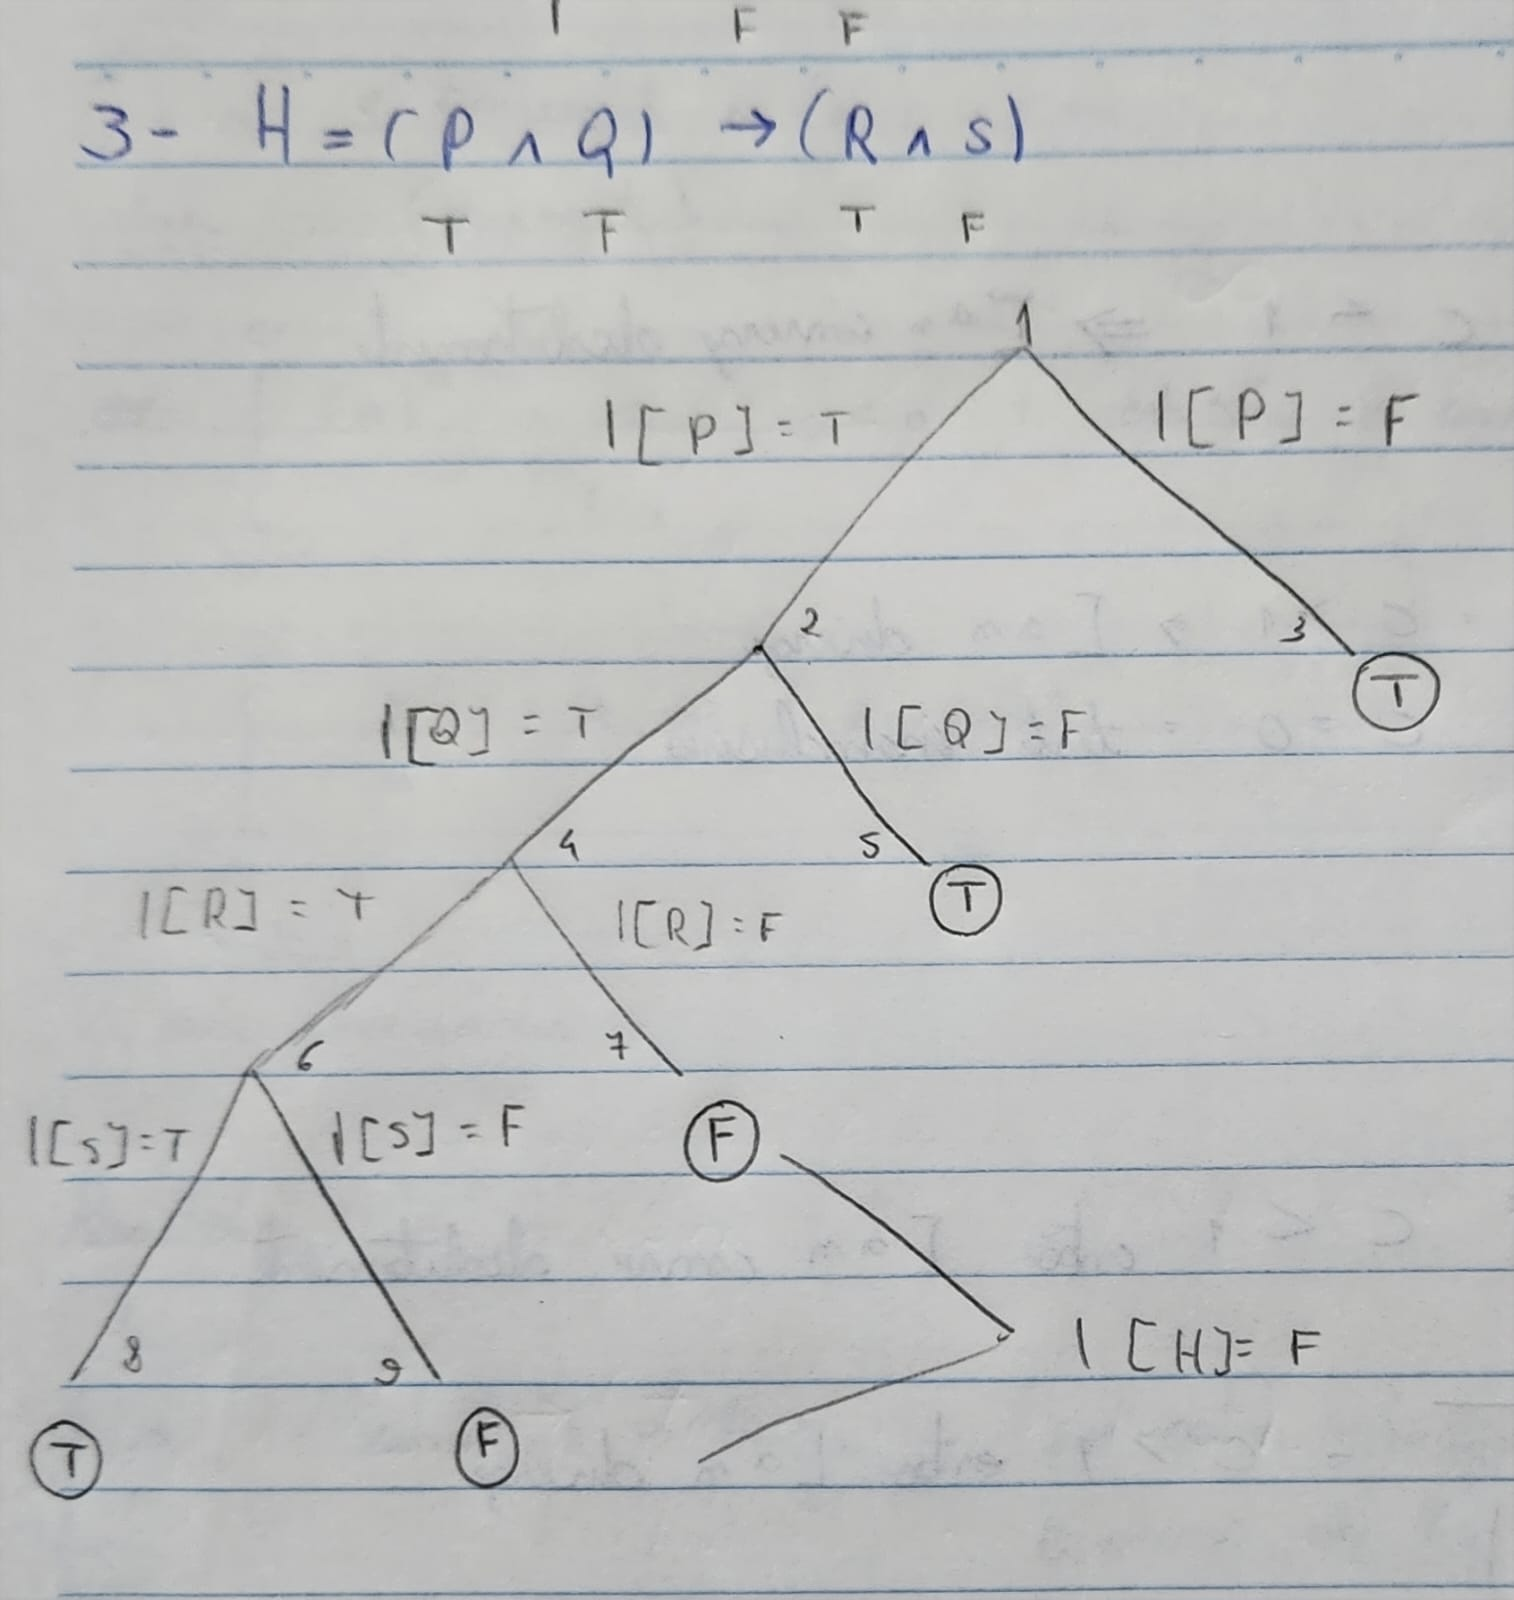 F F
3- H = (P ∧ Q) → (R ∧ S)
T T T F
1
I[P] = T I[P] = F
2 3
T
I[Q] = T I[Q] = F
4 5
T
I[R] = T I[R] = F
6 7
I[S] = T I[S] = F F
8 9 I[H] = F
T F